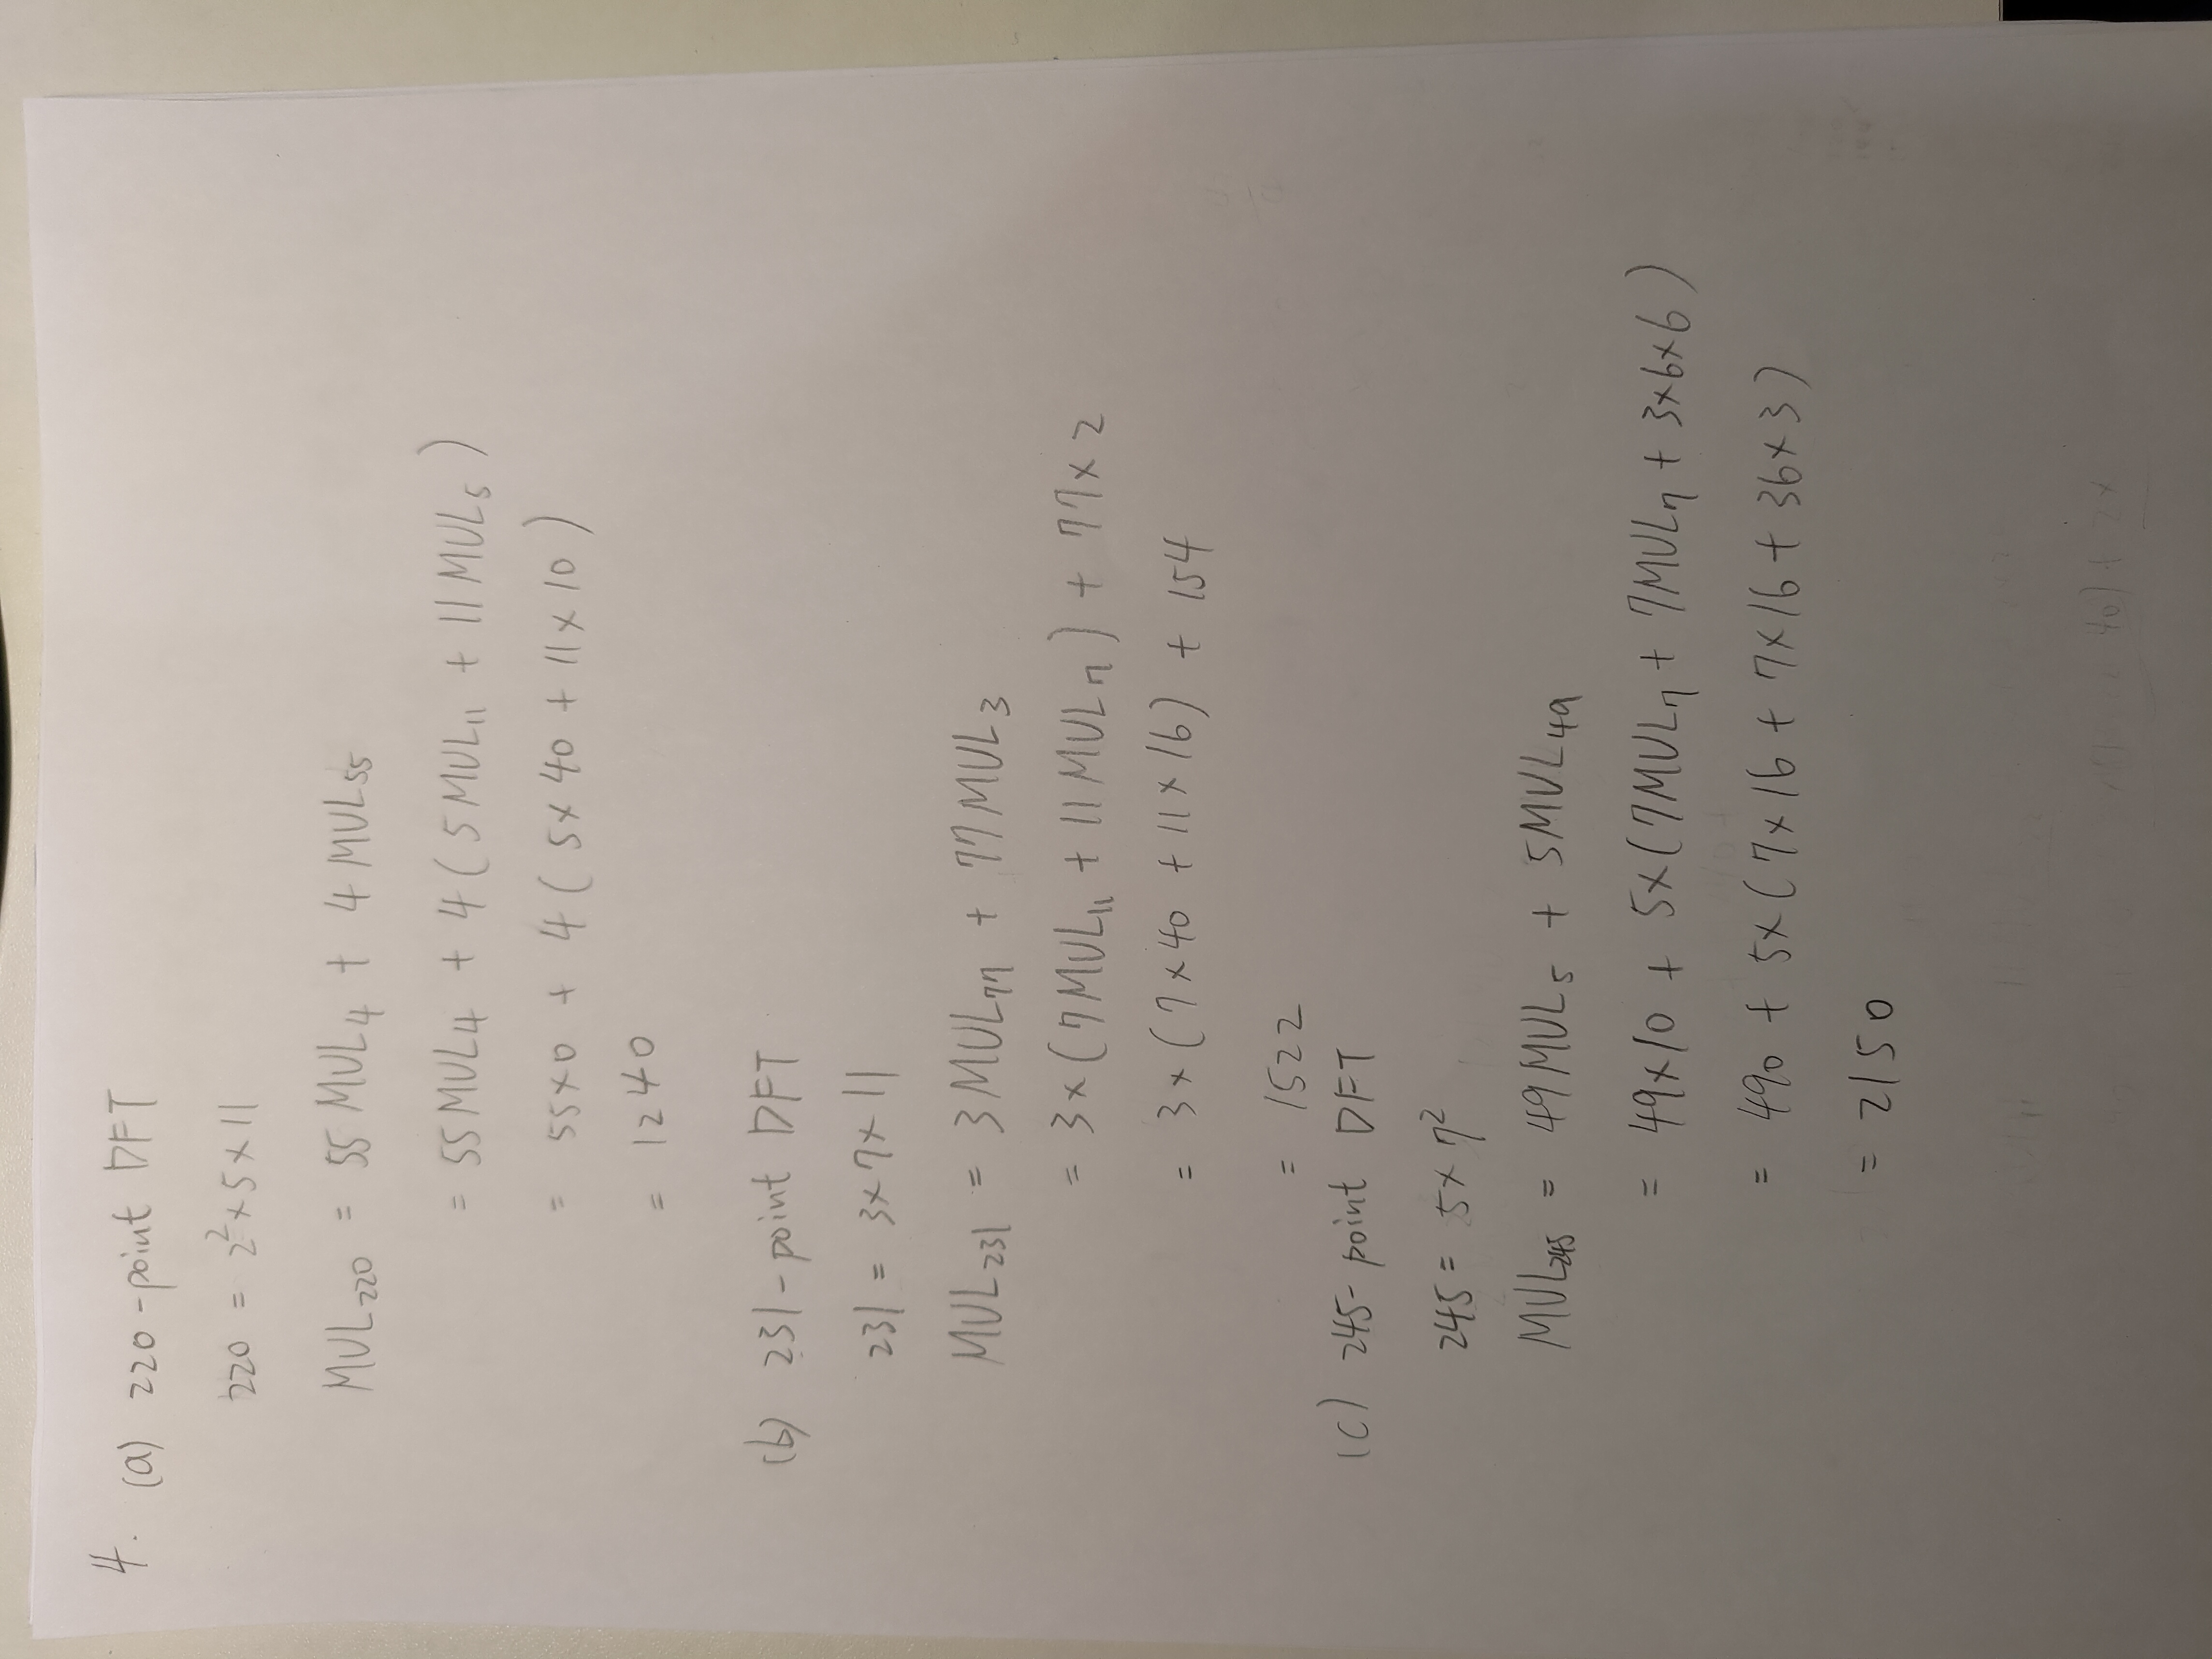 4. (a) 220-point DFT
220 = 2² × 5 × 11
MUL₂₂₀ = 55 MUL₄ + 4 MUL₅₅
= 55 MUL₄ + 4 ( 5 MUL₁₁ + 11 MUL₅ )
= 55×0 + 4 ( 5×40 + 11×10 )
= 1240
(b) 231-point DFT
231 = 3×7×11
MUL₂₃₁ = 3 MUL₇₇ + 77 MUL₃
= 3×(7 MUL₁₁ + 11 MUL₇) + 77×2
= 3×(7×40 + 11×16) + 154
= 1522
(c) 245-point DFT
245 = 5×7²
MUL₂₄₅ = 49 MUL₅ + 5 MUL₄₉
= 49×10 + 5×(7 MUL₇ + 7 MUL₇ + 3×6×6)
= 490 + 5×(7×16 + 7×16 + 36×3)
= 2150